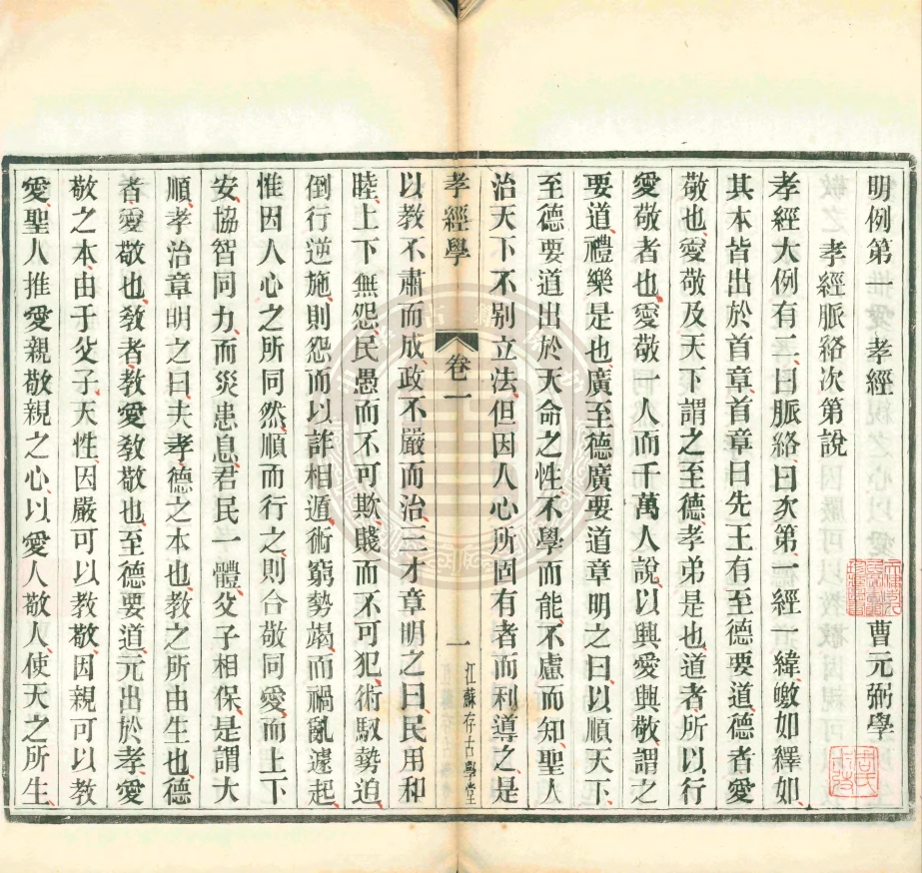 明例第一孝經
曹元弼學
孝經脈絡次第說
孝經大例有二曰脈絡曰次第一經一緯皦如繹如
其本皆出於首章首章曰先王有至德要道德者愛
敬也愛敬及天下謂之至德孝弟是也道者所以行
愛敬者也愛敬一人而千萬人說以興愛興敬謂之
要道禮樂是也廣至德廣要道章明之曰以順天下
至德要道出於天命之性不學而能不慮而知聖人
治天下不别立法但因人心所固有者而利導之是
孝經學
卷一
一
江蘇存古學堂
以教不肅而成政不嚴而治三才章明之曰民用和
睦上下無怨民愚而不可欺賤而不可犯術馭勢迫
倒行逆施則怨而以詐相遁術窮勢竭而禍亂遽起
惟因人心之所同然順而行之則合敬同愛而上下
安協智同力而災患息君民一體父子相保是謂大
順孝治章明之曰夫孝德之本也教之所由生也德
者愛敬也教者教愛教敬也至德要道元出於孝愛
敬之本由于父子天性因嚴可以教敬因親可以教
愛聖人推愛親敬親之心以愛人敬人使天之所生